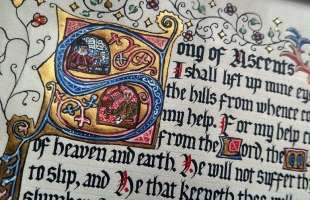 Song of Ascents
I shall lift up mine ey
the hills from whence co
my help. For my help c
from the Lord, the m
of heaven and earth. He will not suffer th
to slip, and He that keepeth thee will